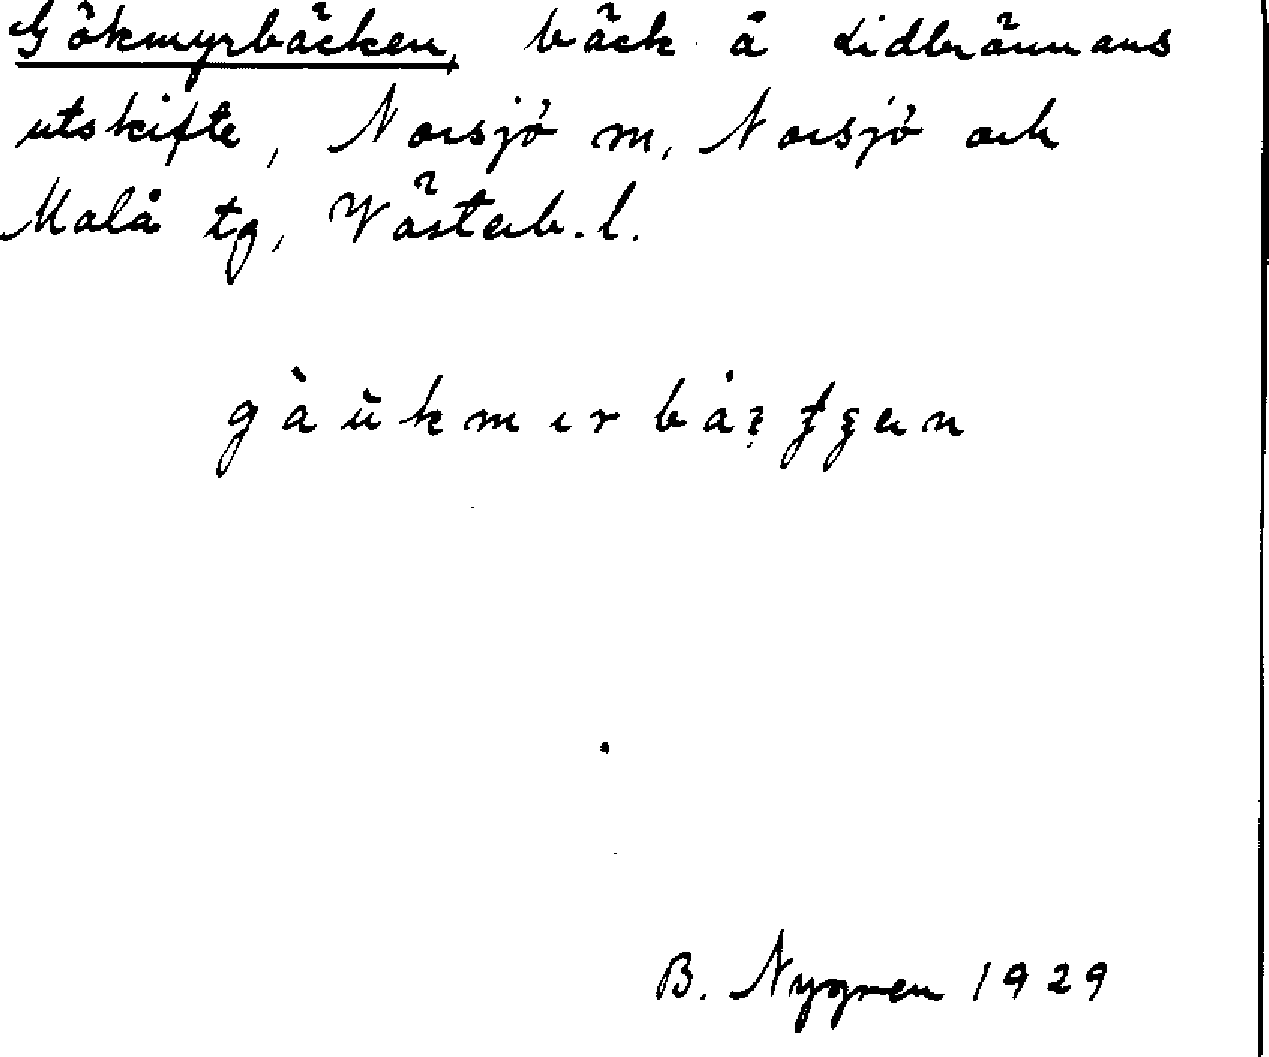 Gökmyrbäcken, bäck å Lidbrännans
utskifte, Norsjö m, Norsjö och
Malå tg, Västerb. l.
B. Nygren 1929